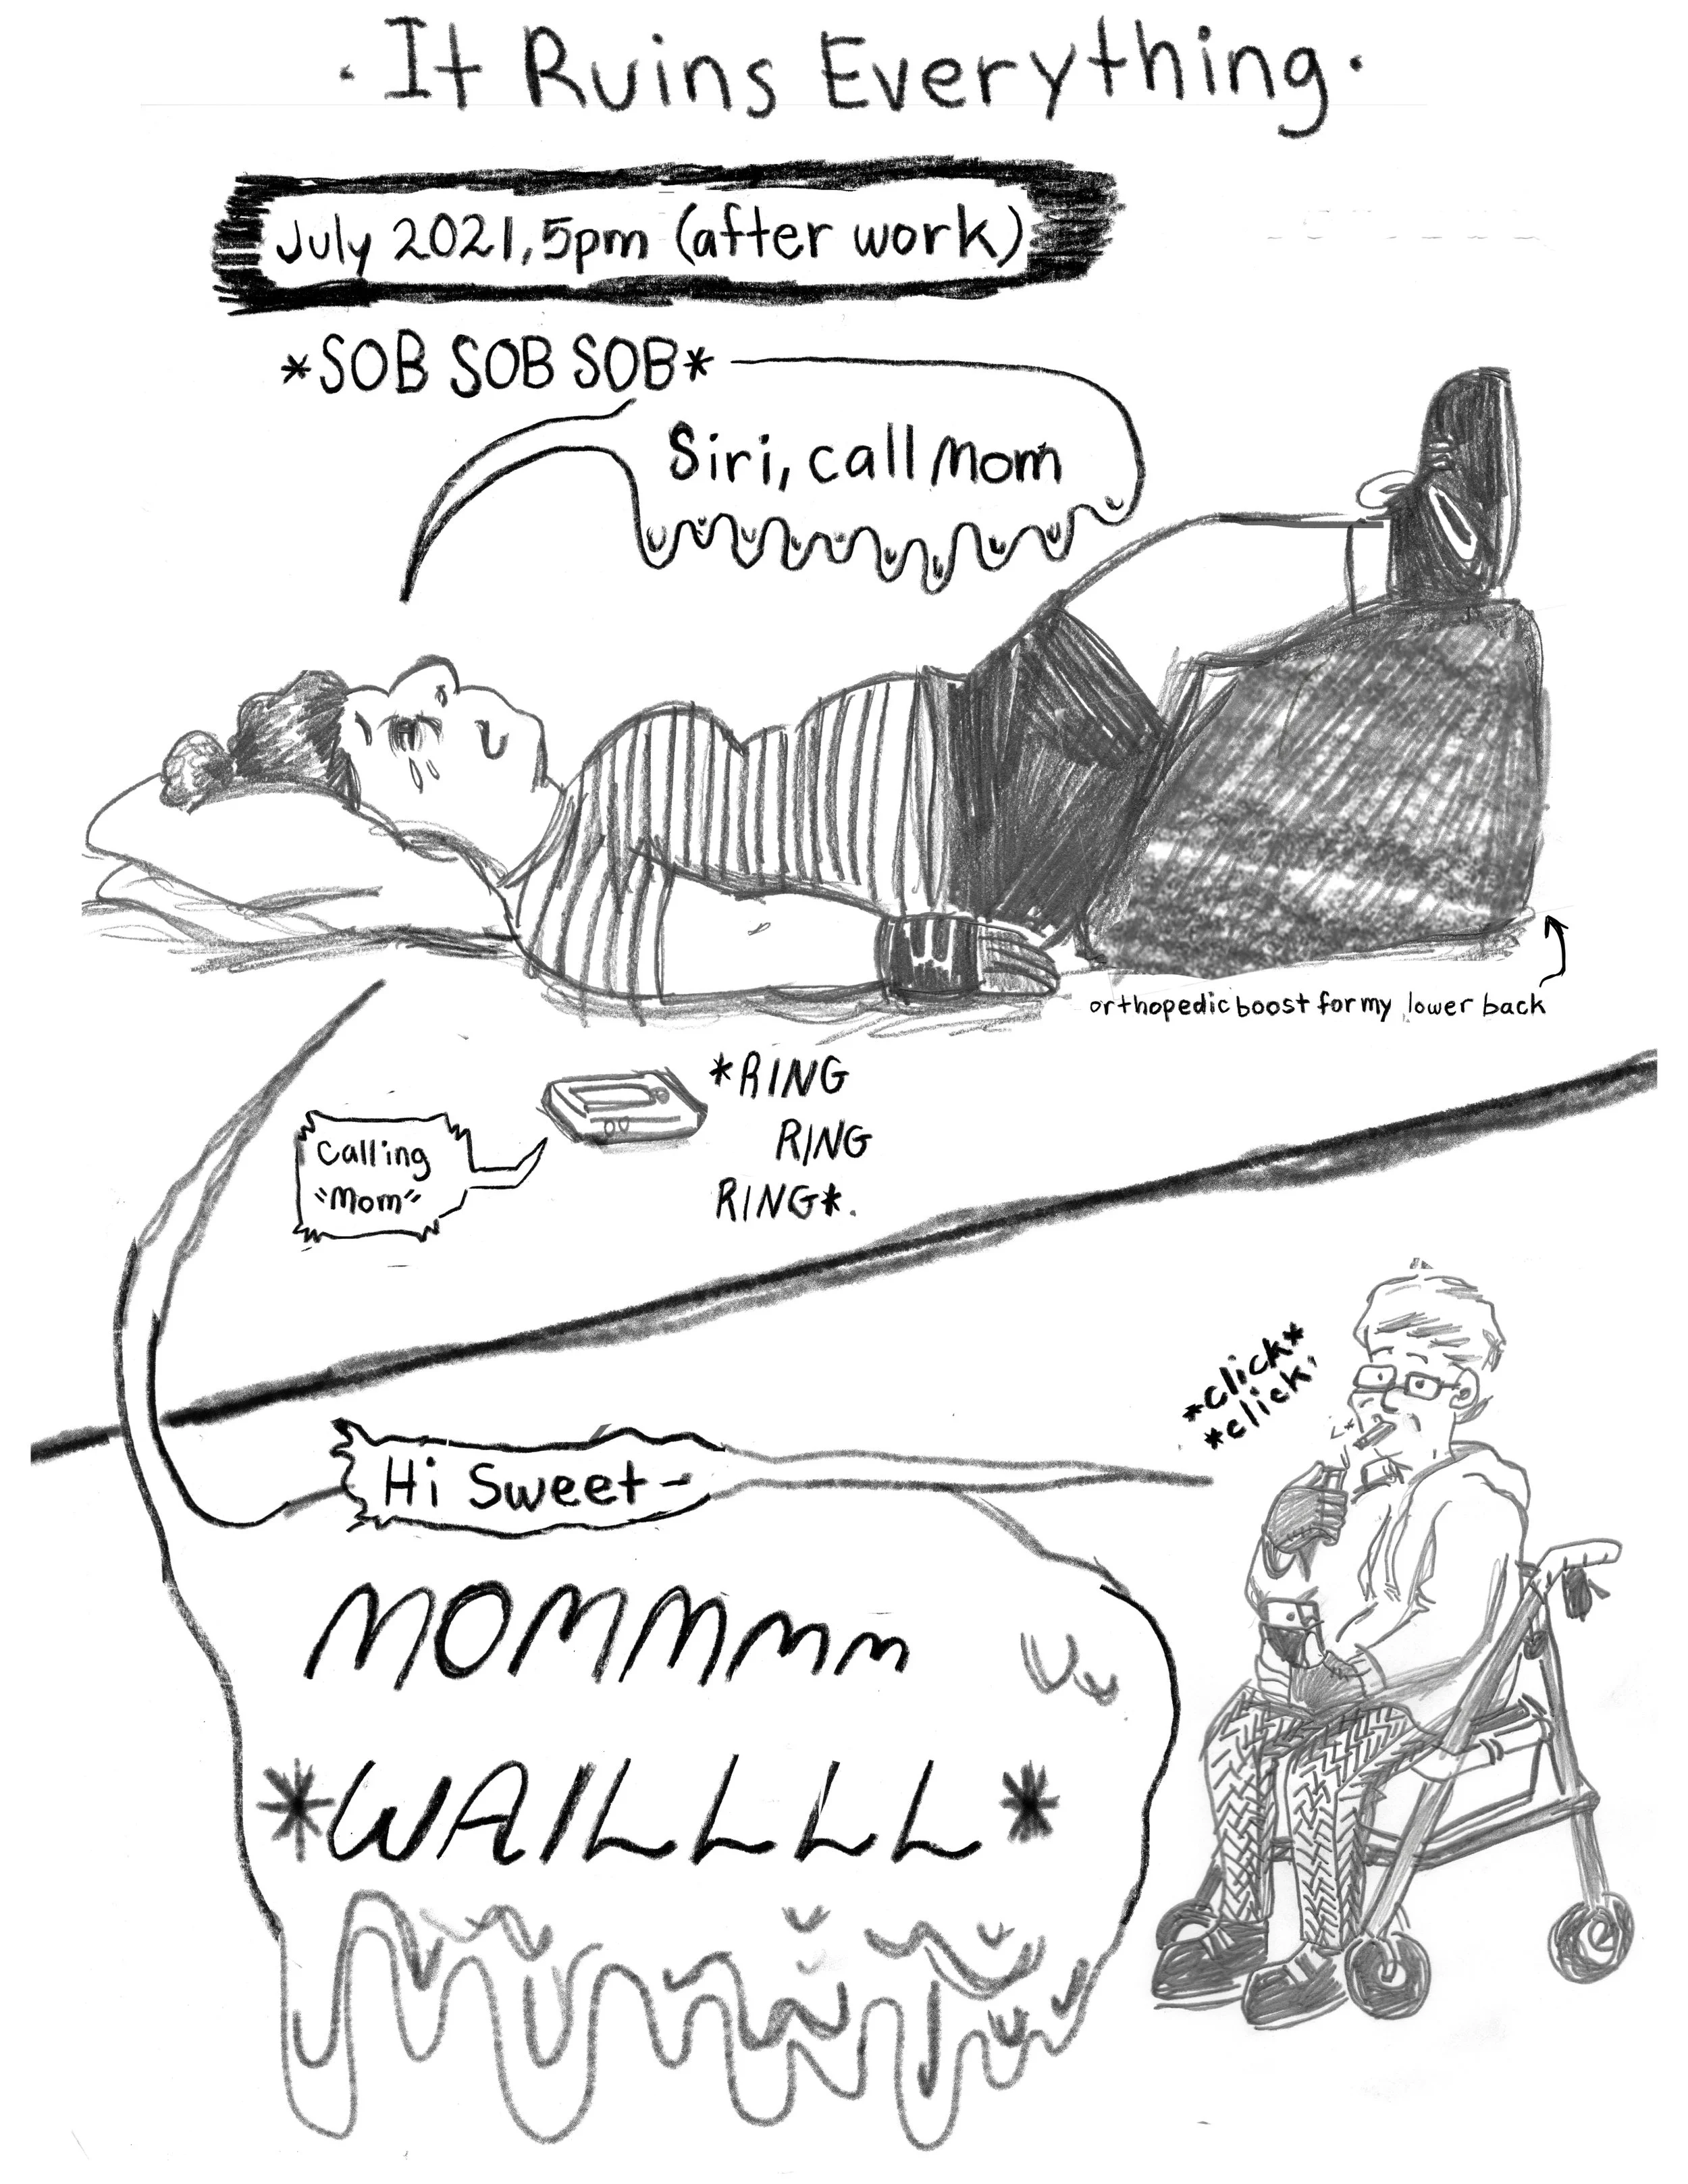 · It Ruins Everything ·
July 2021, 5pm (after work)
*SOB SOB SOB*
Siri, call Mom
orthopedic boost for my lower back
*RING
RING
RING*
Calling
"Mom"
*click*
*click*
Hi Sweet-
MOMMMmm
*WAILLLL*